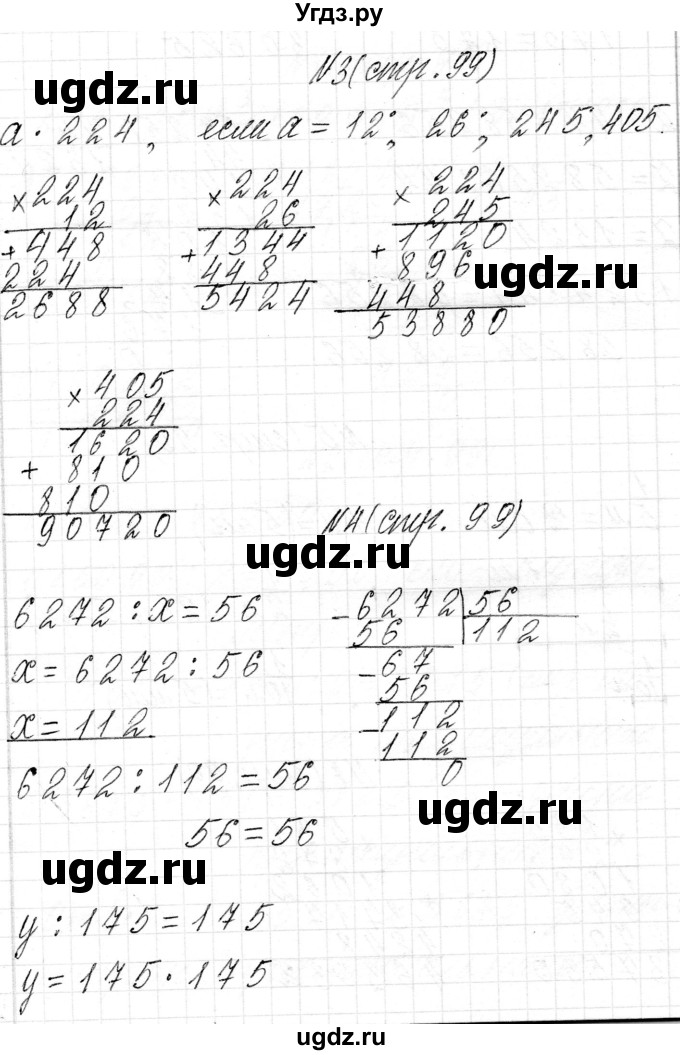 Угдз.ру
N3 (стр. 99)
ugdz.ru
a · 224, если a = 12; 26; 245; 405.
× 224
12
+ 448
224
2688
× 224
26
+ 1344
448
5424
× 224
245
+ 1120
896
448
53880
ugdz.ru
× 405
224
1620
+ 810
810
90720
N4 (стр. 99)
ugdz.ru
6272 : x = 56
x = 6272 : 56
x = 112
6272 : 112 = 56
56 = 56
- 6272 | 56
56 112
- 67
56
- 112
112
0
ugdz.ru
ugdz.ru
y : 175 = 175
y = 175 · 175
ugdz.ru